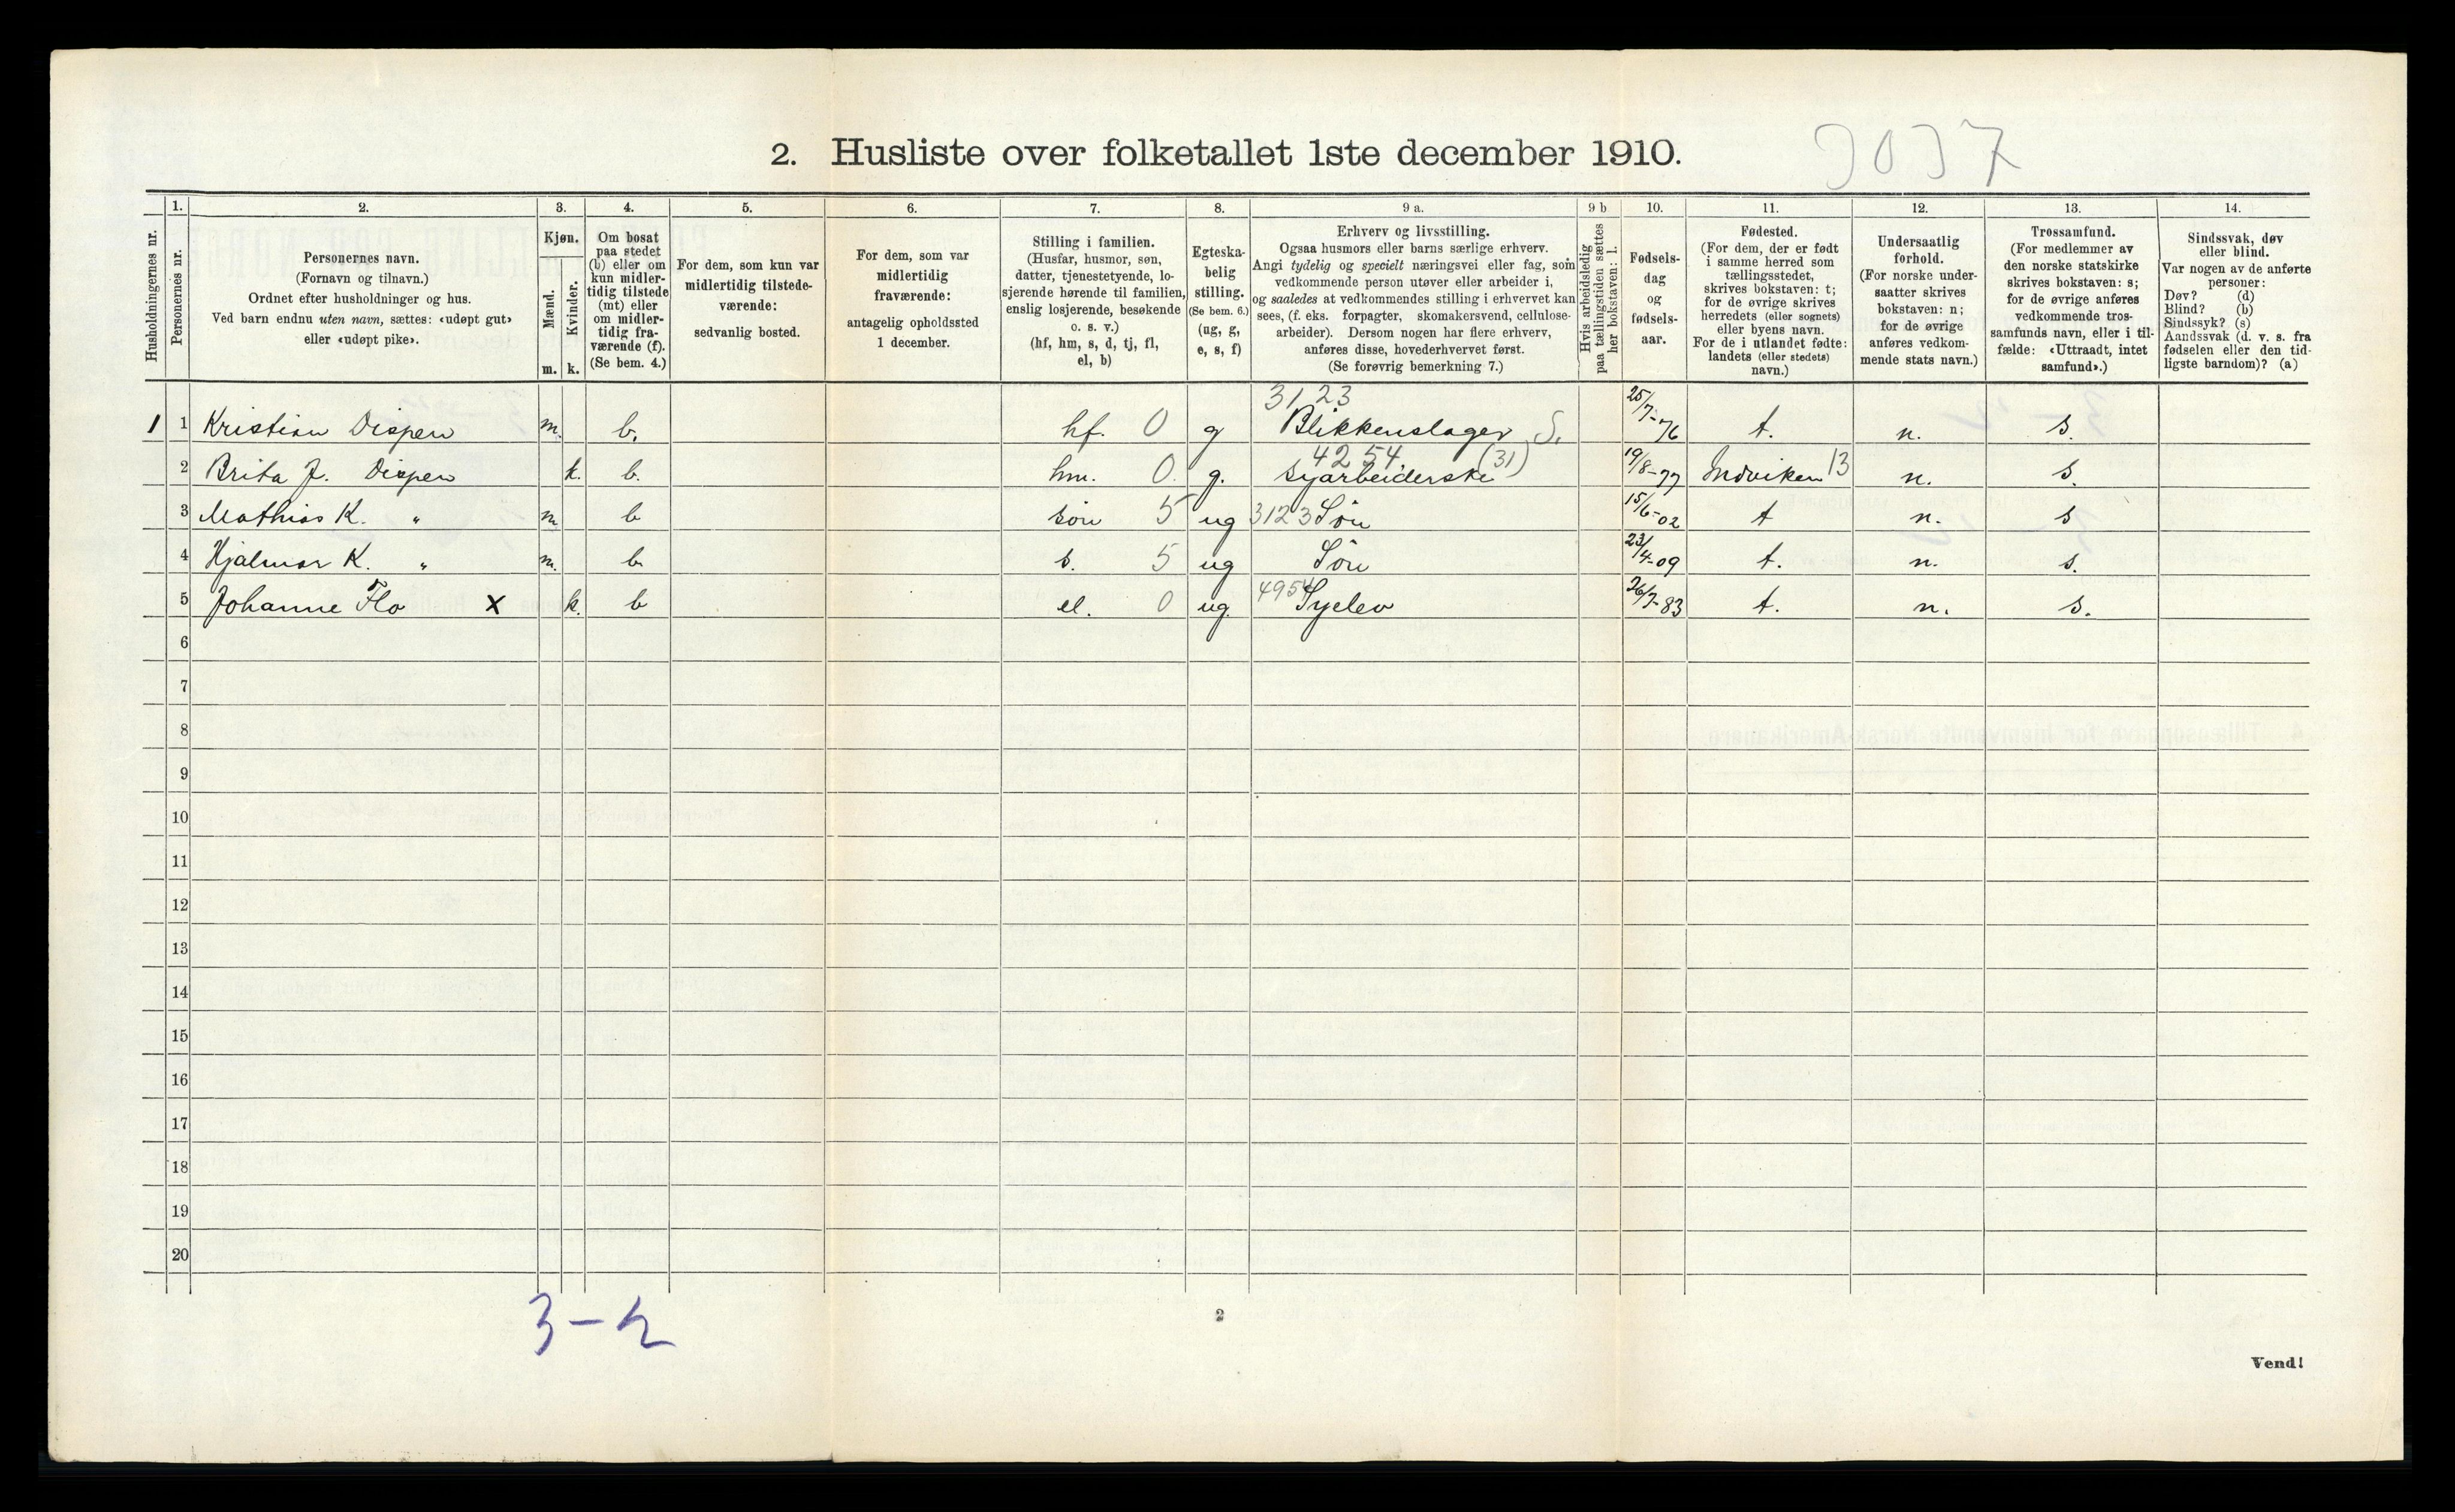 2. Husliste over folketallet 1ste december 1910.
9037
Husholdningernes nr.
1.
Personernes nr.
2.
Personernes navn.
(Fornavn og tilnavn.)
Ordnet efter husholdninger og hus.
Ved barn endnu uten navn, sættes: «udøpt gut»
eller «udøpt pike».
3.
Kjøn.
Mænd.
Kvinder.
m. k.
4.
Om bosat
paa stedet
(b) eller om
kun midler-
tidig tilstede
(mt) eller
om midler-
tidig fra-
værende (f).
(Se bem. 4.)
5.
For dem, som kun var
midlertidig tilstede-
værende:
sedvanlig bosted.
6.
For dem, som var
midlertidig
fraværende:
antagelig opholdssted
1 december.
7.
Stilling i familien.
(Husfar, husmor, søn,
datter, tjenestetyende, lo-
sjerende hørende til familien,
enslig losjerende, besøkende
o. s. v.)
(hf, hm, s, d, tj, fl,
el, b)
8.
Egteska-
belig
stilling.
(Se bem. 6.)
(ug, g,
e, s, f)
9 a.
Erhverv og livsstilling.
Ogsaa husmors eller barns særlige erhverv.
Angi tydelig og specielt næringsvei eller fag, som
vedkommende person utøver eller arbeider i,
og saaledes at vedkommendes stilling i erhvervet kan
sees, (f. eks. forpagter, skomakersvend, cellulose-
arbeider). Dersom nogen har flere erhverv,
anføres disse, hovederhvervet først.
(Se forøvrig bemerkning 7.)
9 b
Hvis arbeidsledig
paa tællingstiden sættes
her bokstaven: l.
10.
Fødsels-
dag
og
fødsels-
aar.
11.
Fødested.
(For dem, der er født
i samme herred som
tællingsstedet,
skrives bokstaven: t;
for de øvrige skrives
herredets (eller sognets)
eller byens navn.
For de i utlandet fødte:
landets (eller stedets)
navn.)
12.
Undersaatlig
forhold.
(For norske under-
saatter skrives
bokstaven: n;
for de øvrige
anføres vedkom-
mende stats navn.)
13.
Trossamfund.
(For medlemmer av
den norske statskirke
skrives bokstaven: s;
for de øvrige anføres
vedkommende tros-
samfunds navn, eller i til-
fælde: «Uttraadt, intet
samfund».)
14.
Sindssvak, døv
eller blind.
Var nogen av de anførte
personer:
Døv? (d)
Blind? (b)
Sindssyk? (s)
Aandssvak (d. v. s. fra
fødselen eller den tid-
ligste barndom)? (a)
3123
1 1 Kristian Dispen m. b. hf. 0 g Blikkenslager S. 25/7-76 t. n. s.
4254 (31)
2 Brita J. Dispen k. b. hm. 0. g. syarbeiderske 19/8-77 Indviken 13 n. s.
3 Mathias K. " m. b søn 5 ug 3123 Søn 15/6-02 t n. s
4 Hjalmar K. " m. b. s. 5 ug Søn 23/4-09 t. n. s.
5 Johanne Flo x k. b el. 0 ug. 4954 Syelev 26/7-83 t. n. s.
6
7
8
9
10
11
12
13
14
15
16
17
18
19
20
3-2
2
Vend!